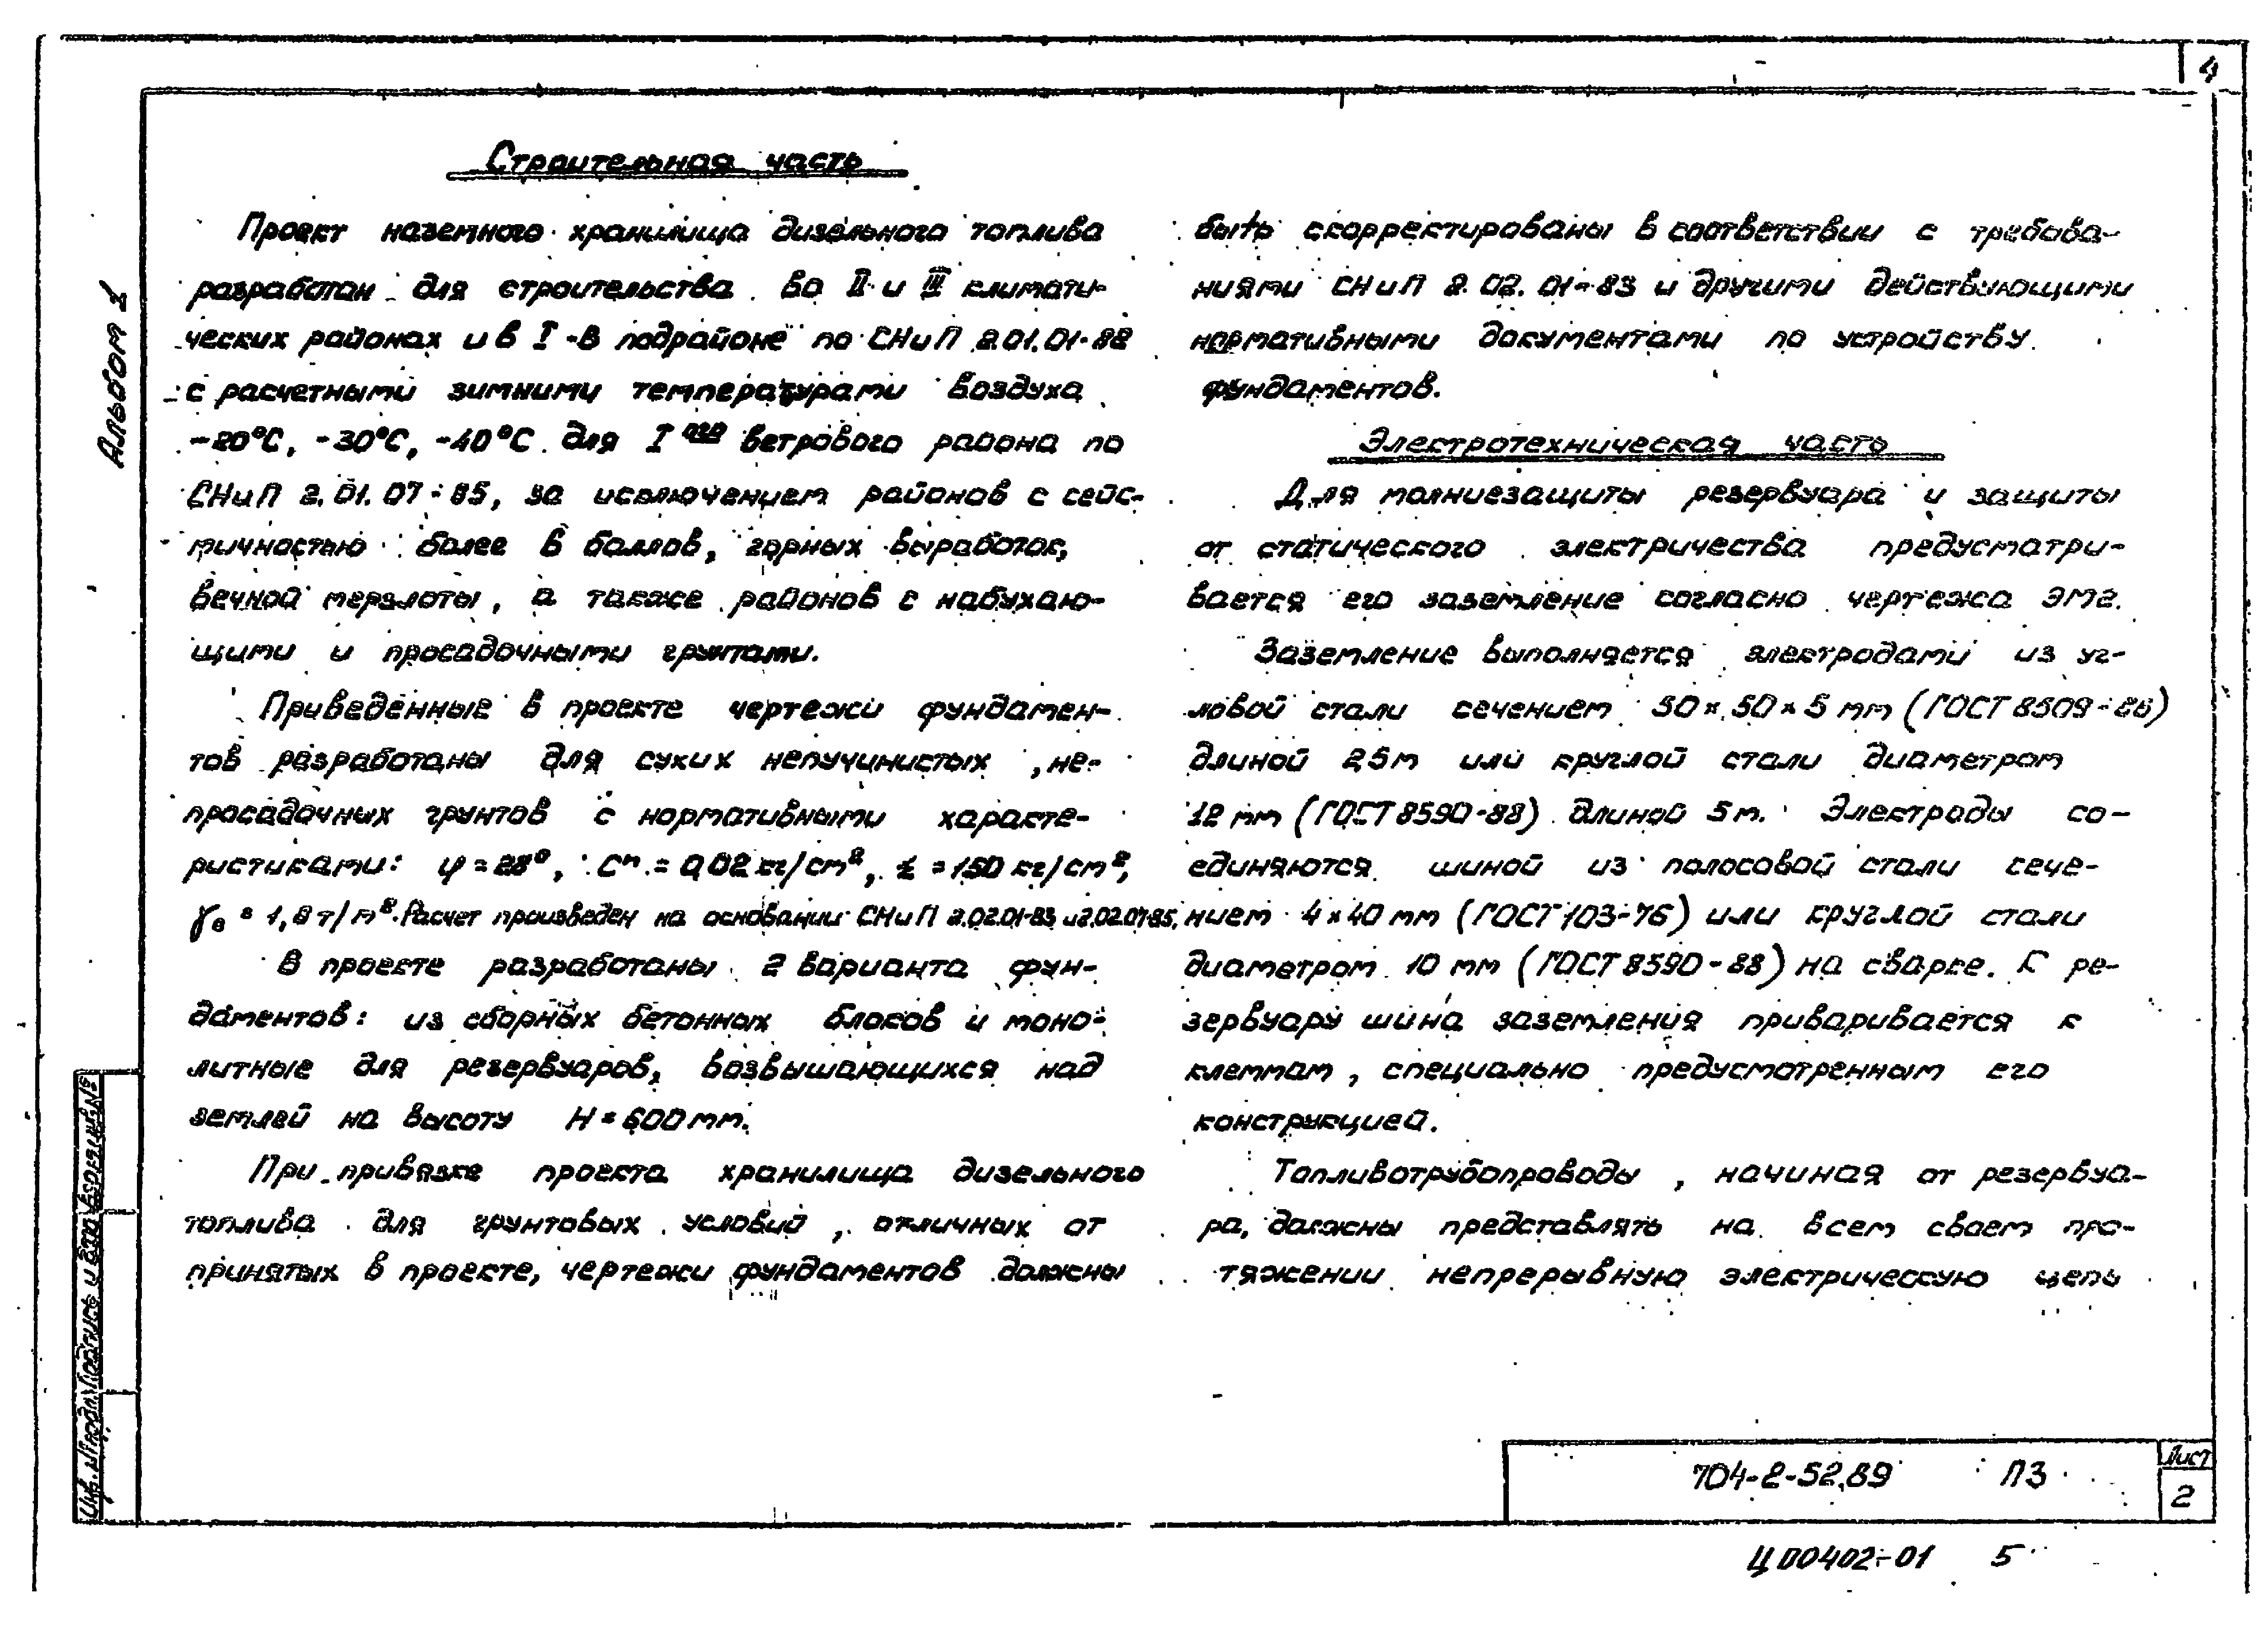 4
Альбом 1
Строительная часть
Проект наземного хранилища дизельного топлива
разработан для строительства во II и III климати-
ческих районах и в I-В подрайоне по СНиП 2.01.01-82
с расчетными зимними температурами воздуха
-20°С, -30°С, -40°С для I ого ветрового района по
СНиП 2.01.07-85, за исключением районов с сейс-
мичностью более 6 баллов, горных выработок,
вечной мерзлоты, а также районов с набухаю-
щими и просадочными грунтами.
Приведенные в проекте чертежи фундамен-
тов разработаны для сухих непучинистых, не-
просадочных грунтов с нормативными характе-
ристиками: φ=28°, Cⁿ=0,02 кг/см², E=150 кг/см²,
γ = 1,8 т/м³. Расчет произведен на основании СНиП 2.02.01-83 и 2.02.07-85.
В проекте разработаны 2 варианта фун-
даментов: из сборных бетонных блоков и моно-
литные для резервуаров, возвышающихся над
землей на высоту H=600мм.
При привязке проекта хранилища дизельного
топлива для грунтовых условий, отличных от
принятых в проекте, чертежи фундаментов должны
быть скорректированы в соответствии с требова-
ниями СНиП 2.02.01-83 и другими действующими
нормативными документами по устройству
фундаментов.
Электротехническая часть
Для молниезащиты резервуара и защиты
от статического электричества предусматри-
вается его заземление согласно чертежа ЭМ2.
Заземление выполняется электродами из уг-
ловой стали сечением 50×50×5 мм (ГОСТ 8509-86)
длиной 2,5м или круглой стали диаметром
12 мм (ГОСТ 8590-88) длиной 5 м. Электроды со-
единяются шиной из полосовой стали сече-
нием 4×40 мм (ГОСТ 103-76) или круглой стали
диаметром 10 мм (ГОСТ 8590-88) на сварке. К ре-
зервуару шина заземления приваривается к
клеммам, специально предусмотренным его
конструкцией.
Топливотрубопроводы, начиная от резервуа-
ра, должны представлять на всем своем про-
тяжении непрерывную электрическую цепь
Инв. № подл. Подпись и дата Взам.инв.№
704-2-52.89 ПЗ
Лист
2
Ц00402-01 5